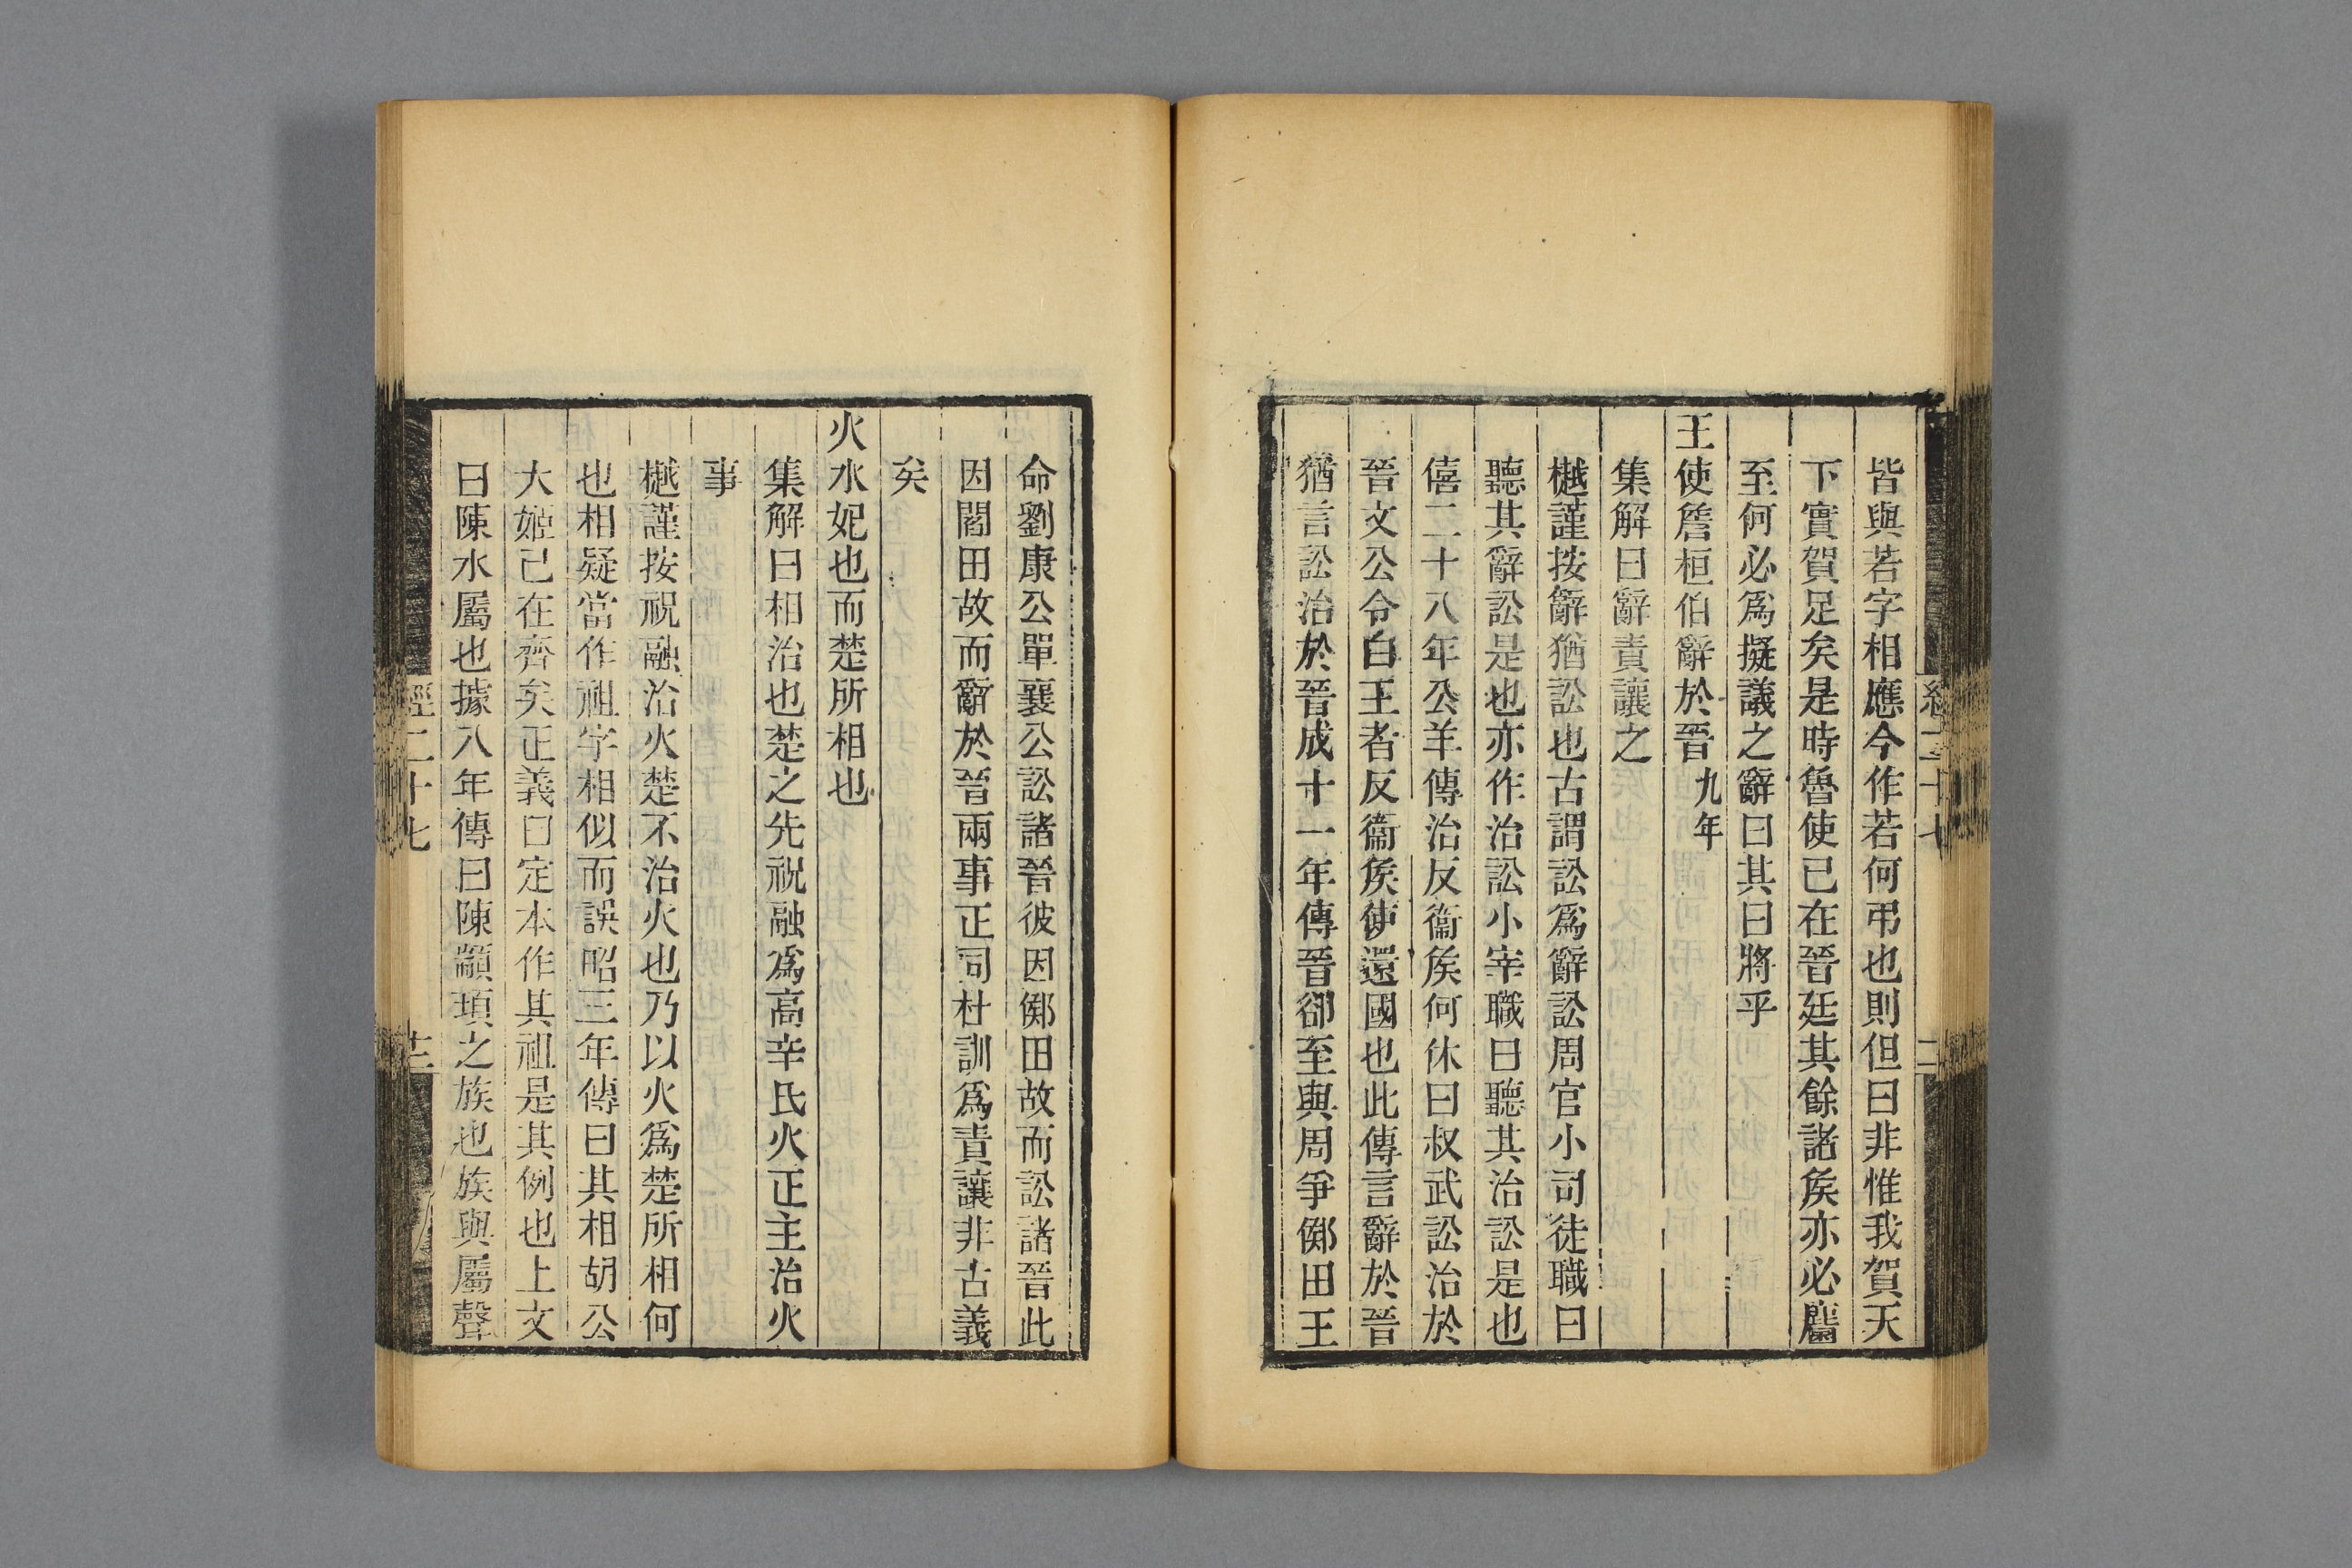 皆與若字相應今作若何弔也則但曰非惟我賀天
下實賀足矣是時魯使已在晉廷其餘諸矦亦必麕
至何必爲擬議之辭曰其曰將乎
王使詹桓伯辭於晉九年
集解曰辭責讓之
樾謹按辭猶訟也古謂訟爲辭訟周官小司徒職曰
聽其辭訟是也亦作治訟小宰職曰聽其治訟是也
僖二十八年公羊傳治反衞矦何休曰叔武訟治於
晉文公令白王者反衞矦使還國也此傳言辭於晉
猶言訟治於晉成十一年傳晉郤至與周爭鄇田王
命劉康公單襄公訟諸晉彼因鄇田故而訟諸晉此
因閻田故而辭於晉兩事正同杜訓爲責讓非古義
矣
火水妃也而楚所相也
集解曰相治也楚之先祝融爲高辛氏火正主治火
事
樾謹按祝融治火楚不治火也乃以火爲楚所相何
也相疑當作祖字相似而誤昭三年傳曰其相胡公
大姬已在齊矣正義曰定本作其祖是其例也上文
曰陳水屬也據八年傳曰陳顓頊之族也族與屬聲
經二十七